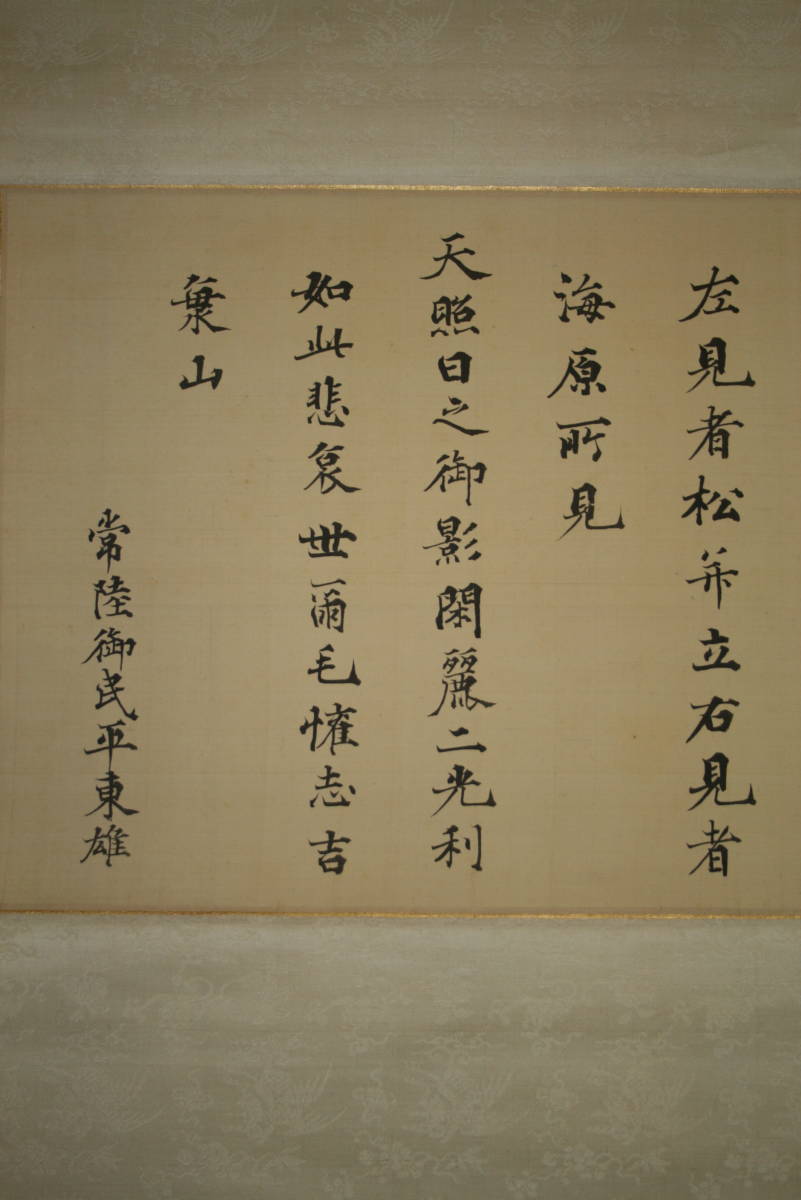 左見者松并立右見者
海原所見
天照日之御影閑麗二光利
如此悲哀世爾毛慛志吉
葉山
常陸御民平東雄